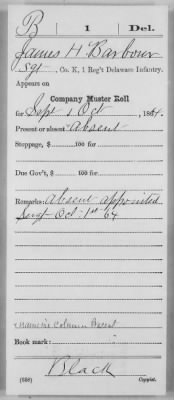 B | 1 | Del.
James H Barbour
Sgt, Co. K, 1 Reg't Delaware Infantry.
Appears on
Company Muster Roll
for Sept & Oct, 1864.
Present or absent Absent
Stoppage, $ 100 for
Due Gov't, $ 100 for
Remarks: Absent appointed
Sergt Oct. 1st 64
name in column
Book mark:
Black
(858) Copyist.